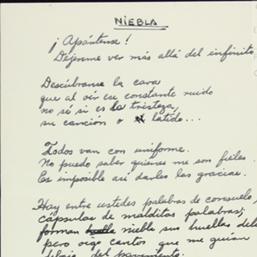 NIEBLA
¡Apártense!
Déjenme ver más allá del infinito
Descúbranse la cara
que al oír ese constante ruido
no sé si es la tristeza,
su canción o latido...
Todos van con uniforme.
No puedo saber quienes me son fieles.
Es imposible así darles las gracias.
Hay entre ustedes palabras de consuelo,
cápsulas de malditas palabras;
forman niebla sus huellas
pero oigo cantos que me guían
debajo del pavimento.